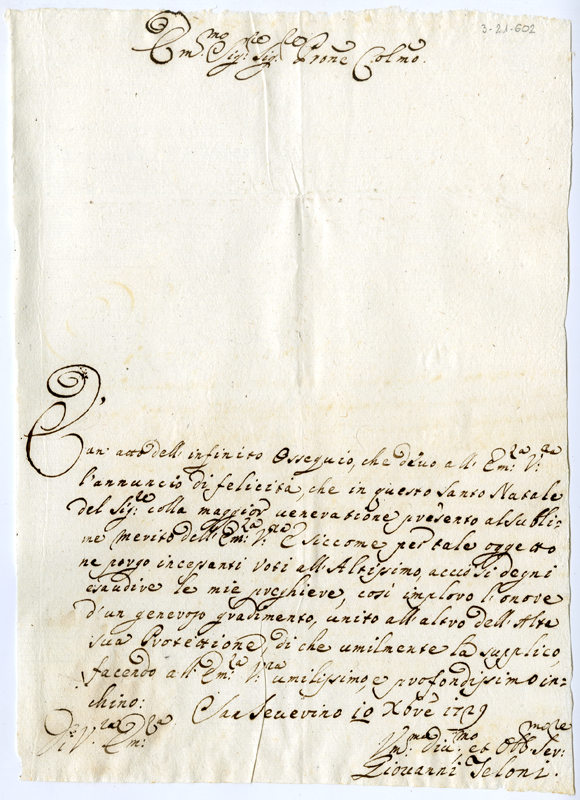 3-21-602
Em.mo Sig.re Sig.re Prone Colmo.
E un' atto dell' infinito Ossequio, che devo all' Em.za V.ra
l'annuncio di felicità, che in questo Santo Natale
del Sig.re colla maggior venerazione presento al subli-
me merito dell' Em.za V.ra E siccome per tale oggetto
ne porgo incesanti voti all' Altissimo, accio si degni
esaudire le mie preghiere, così imploro l'onore
d'un generoso gradimento, unito all' altro dell' Alta
sua Protettione, di che umilmente la supplico,
facendo all' Em.za V.ra umilissimo, e profondissimo in-
chino:
San Severino 10 Xbre 1729
Di V.ra Em.za
Um.mo Div.mo et Obb. Ser.
Giovanni Teloni.